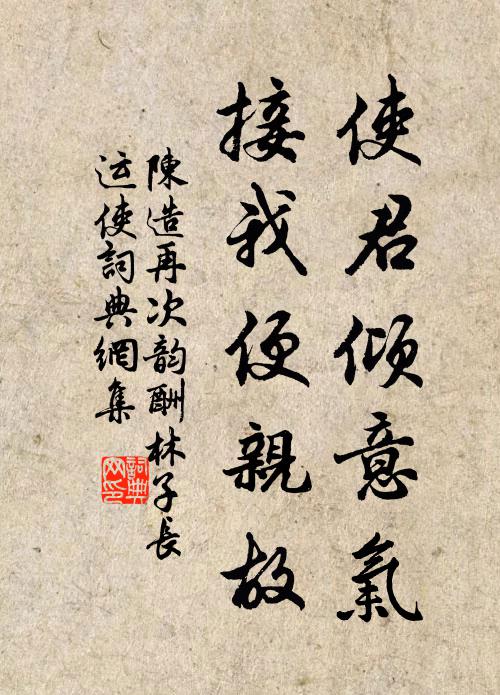 使君傾意氣
接我便親故
陳造再次韵酬林子長
运使詞典網集
詞典
网印